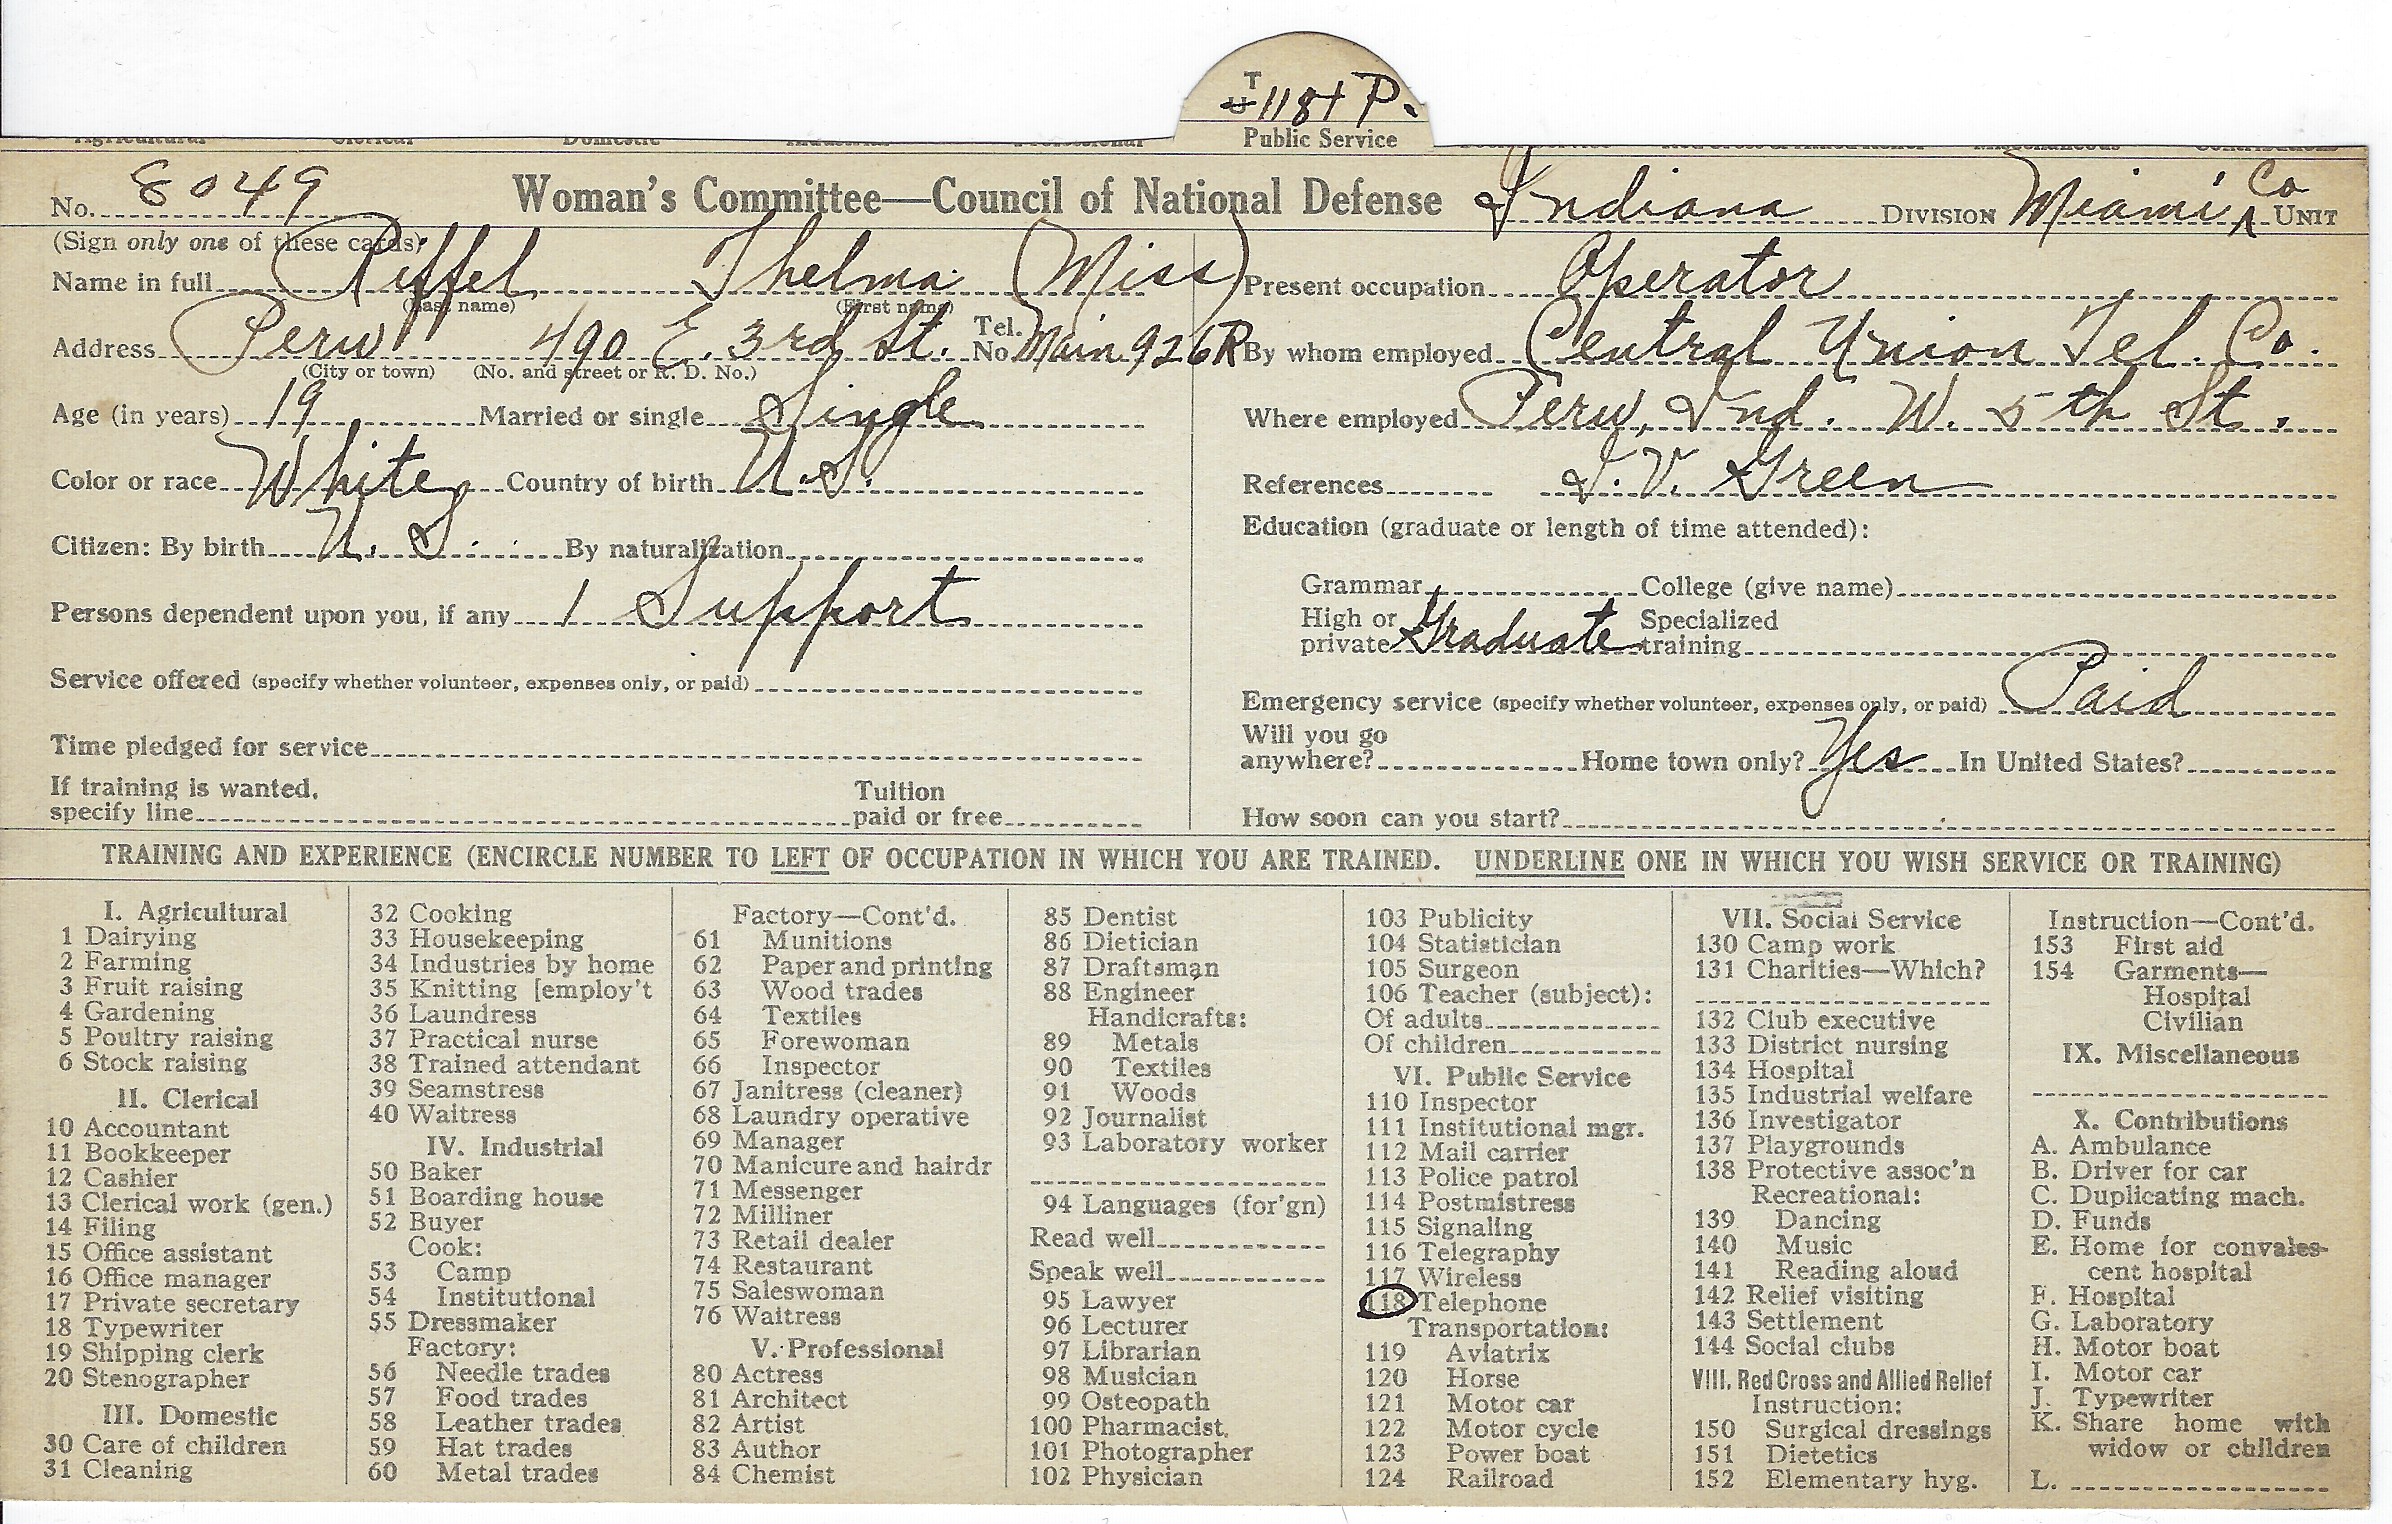 T
U 118 T P.
Public Service
No. 8049 Woman's Committee—Council of National Defense Indiana DIVISION Miami Co UNIT
(Sign only one of these cards)
Name in full Riffel Thelma (Miss)
(Last name) (First name)
Address Peru 490 E. 3rd St. Tel. No. Main 926R
(City or town) (No. and street or R. D. No.)
Age (in years) 19 Married or single Single
Color or race White Country of birth U.S.
Citizen: By birth U. S. By naturalization
Persons dependent upon you, if any 1 Support
Service offered (specify whether volunteer, expenses only, or paid)
Time pledged for service
If training is wanted, specify line Tuition paid or free
Present occupation Operator
By whom employed Central Union Tel. Co.
Where employed Peru, Ind. W. 5th St.
References V. Green
Education (graduate or length of time attended):
Grammar College (give name)
High or private Graduate Specialized training
Emergency service (specify whether volunteer, expenses only, or paid) Paid
Will you go anywhere? Home town only? Yes In United States?
How soon can you start?
TRAINING AND EXPERIENCE (ENCIRCLE NUMBER TO LEFT OF OCCUPATION IN WHICH YOU ARE TRAINED. UNDERLINE ONE IN WHICH YOU WISH SERVICE OR TRAINING)
I. Agricultural
1 Dairying
2 Farming
3 Fruit raising
4 Gardening
5 Poultry raising
6 Stock raising
II. Clerical
10 Accountant
11 Bookkeeper
12 Cashier
13 Clerical work (gen.)
14 Filing
15 Office assistant
16 Office manager
17 Private secretary
18 Typewriter
19 Shipping clerk
20 Stenographer
III. Domestic
30 Care of children
31 Cleaning
32 Cooking
33 Housekeeping
34 Industries by home
35 Knitting [employ't
36 Laundress
37 Practical nurse
38 Trained attendant
39 Seamstress
40 Waitress
IV. Industrial
50 Baker
51 Boarding house
52 Buyer
Cook:
53 Camp
54 Institutional
55 Dressmaker
Factory:
56 Needle trades
57 Food trades
58 Leather trades
59 Hat trades
60 Metal trades
Factory—Cont'd.
61 Munitions
62 Paper and printing
63 Wood trades
64 Textiles
65 Forewoman
66 Inspector
67 Janitress (cleaner)
68 Laundry operative
69 Manager
70 Manicure and hairdr
71 Messenger
72 Milliner
73 Retail dealer
74 Restaurant
75 Saleswoman
76 Waitress
V. Professional
80 Actress
81 Architect
82 Artist
83 Author
84 Chemist
85 Dentist
86 Dietician
87 Draftsman
88 Engineer
Handicrafts:
89 Metals
90 Textiles
91 Woods
92 Journalist
93 Laboratory worker
94 Languages (for'gn)
Read well
Speak well
95 Lawyer
96 Lecturer
97 Librarian
98 Musician
99 Osteopath
100 Pharmacist.
101 Photographer
102 Physician
103 Publicity
104 Statistician
105 Surgeon
106 Teacher (subject):
Of adults
Of children
VI. Public Service
110 Inspector
111 Institutional mgr.
112 Mail carrier
113 Police patrol
114 Postmistress
115 Signaling
116 Telegraphy
117 Wireless
118 Telephone
Transportation:
119 Aviatrix
120 Horse
121 Motor car
122 Motor cycle
123 Power boat
124 Railroad
VII. Social Service
130 Camp work
131 Charities—Which?
132 Club executive
133 District nursing
134 Hospital
135 Industrial welfare
136 Investigator
137 Playgrounds
138 Protective assoc'n
Recreational:
139 Dancing
140 Music
141 Reading aloud
142 Relief visiting
143 Settlement
144 Social clubs
VIII. Red Cross and Allied Relief
Instruction:
150 Surgical dressings
151 Dietetics
152 Elementary hyg.
Instruction—Cont'd.
153 First aid
154 Garments—
Hospital
Civilian
IX. Miscellaneous
X. Contributions
A. Ambulance
B. Driver for car
C. Duplicating mach.
D. Funds
E. Home for convales-
cent hospital
F. Hospital
G. Laboratory
H. Motor boat
I. Motor car
J. Typewriter
K. Share home with
widow or children
L.